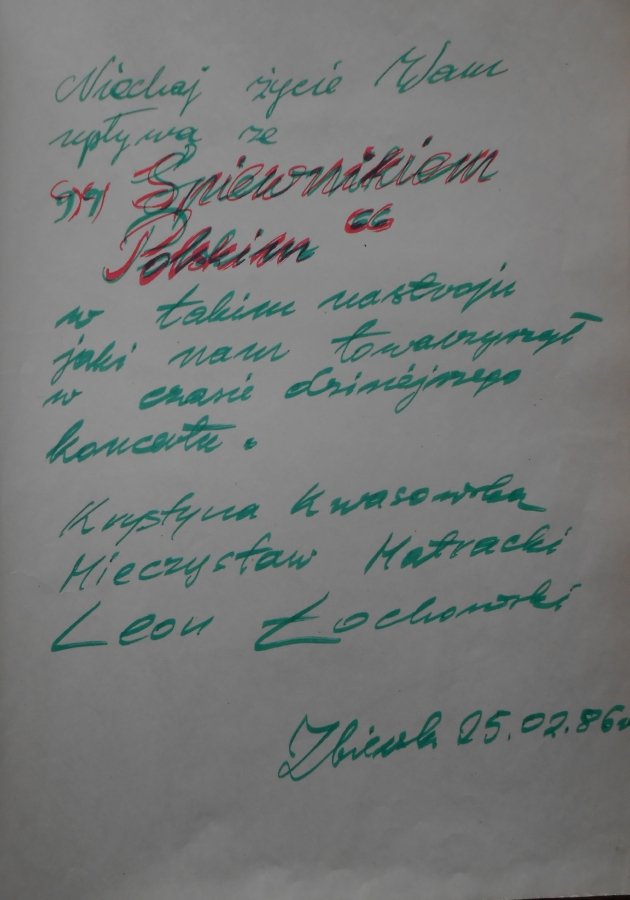 Niechaj życie Wam
upływa ze
„Śpiewnikiem
Polskim"
w takim nastroju
jaki nam towarzyszył
w czasie dzisiejszego
koncertu.
Krystyna Kwasowska
Mieczysław Matracki
Leon Łochowski
Zbiersk 25.02.86r